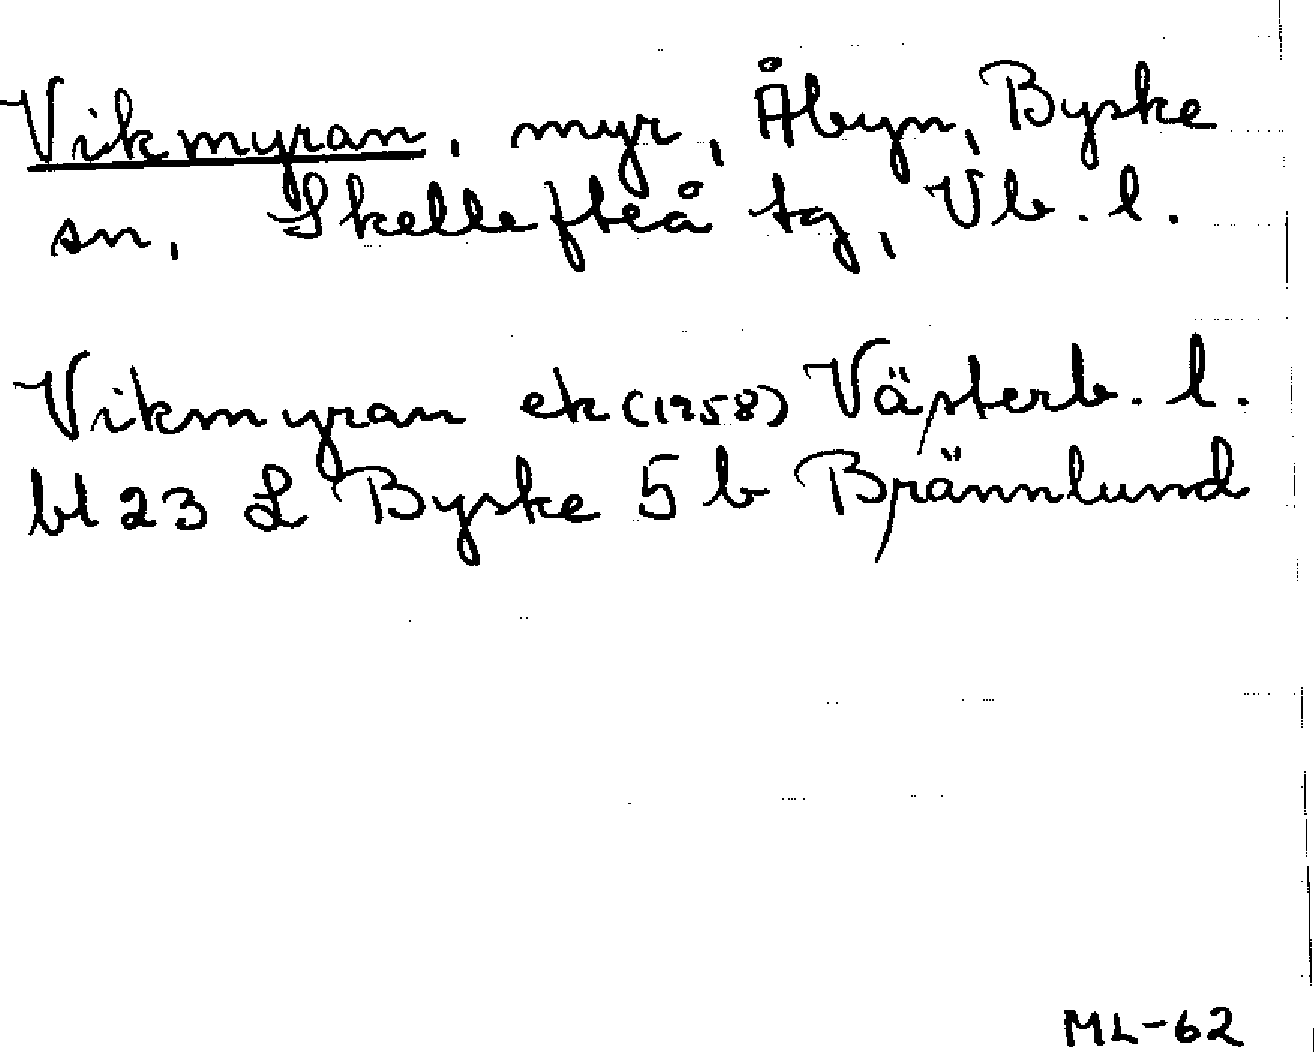 Vikmyran, myr, Åbyn, Byske
sn, Skellefteå tg, Vb. l.
Vikmyran ek (1958) Västerb. l.
bl 23 L Byske 5 b Brännlund
ML-62